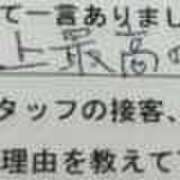 て一言ありまし
上最高の
タッフの接客、
理由を教えて